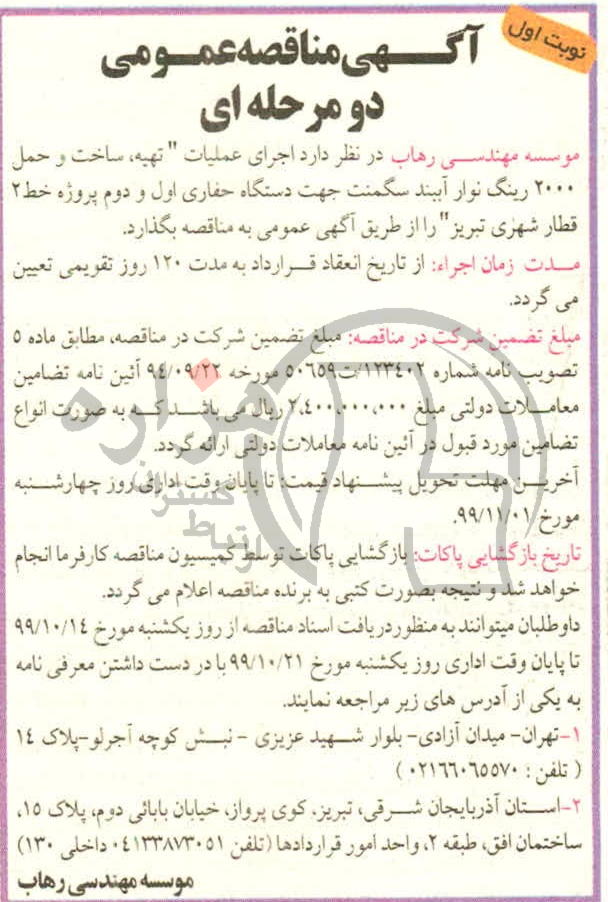 نوبت اول
آگهی مناقصه عمومی
دو مرحله ای
موسسه مهندسی رهاب در نظر دارد اجرای عملیات " تهیه، ساخت و حمل
۲۰۰۰ رینگ نوار آببند سگمنت جهت دستگاه حفاری اول و دوم پروژه خط۲
قطار شهری تبریز" را از طریق آگهی عمومی به مناقصه بگذارد.
مدت زمان اجراء: از تاریخ انعقاد قرارداد به مدت ۱۲۰ روز تقویمی تعیین
می گردد.
مبلغ تضمین شرکت در مناقصه: مبلغ تضمین شرکت در مناقصه، مطابق ماده ۵
تصویب نامه شماره ۱۲۳۴۰۲/ت۵۰۶۵۹ مورخه ۹۴/۰۹/۲۲ آئین نامه تضامین
معاملات دولتی مبلغ ۲,۴۰۰,۰۰۰,۰۰۰ ریال می باشد که به صورت انواع
تضامین مورد قبول در آئین نامه معاملات دولتی ارائه گردد.
آخرین مهلت تحویل پیشنهاد قیمت: تا پایان وقت اداری روز چهارشنبه
مورخ ۹۹/۱۱/۰۱.
تاریخ بازگشایی پاکات: بازگشایی پاکات توسط کمیسیون مناقصه کارفرما انجام
خواهد شد و نتیجه بصورت کتبی به برنده مناقصه اعلام می گردد.
داوطلبان میتوانند به منظور دریافت اسناد مناقصه از روز یکشنبه مورخ ۹۹/۱۰/۱۴
تا پایان وقت اداری روز یکشنبه مورخ ۹۹/۱۰/۲۱ با در دست داشتن معرفی نامه
به یکی از آدرس های زیر مراجعه نمایند.
۱-تهران- میدان آزادی- بلوار شهید عزیزی - نبش کوچه آجرلو-پلاک ۱۴
( تلفن : ۰۲۱۶۶۰۶۵۵۷۰ )
۲-استان آذربایجان شرقی، تبریز، کوی پرواز، خیابان بابائی دوم، پلاک ۱۵،
ساختمان افق، طبقه ۲، واحد امور قراردادها (تلفن ۰۴۱۳۳۸۷۳۰۵۱ داخلی ۱۳۰)
موسسه مهندسی رهاب
هزاره
گسترش
ارتباط